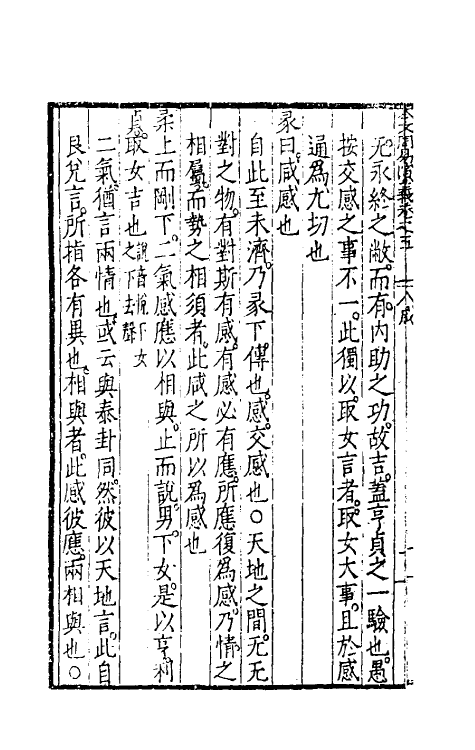 无永終之敝而有内助之功故吉蓋亨貞之一驗也愚
按交感之事不一此獨以取女言者取女大事且於感
通爲尤切也
彖曰咸感也
自此至未濟乃彖下傳也感交感也○天地之間无无
對之物有對斯有感有感必有應所應復爲感乃情之
相屬而勢之相須者此咸之所以爲感也
柔上而剛下二氣感應以相與止而說男下女是以亨利
貞取女吉也說音悅下女之下去聲
二氣猶言兩情也或云與泰卦同然彼以天地言此自
艮兌言所指各有異也相與者此感彼應兩相與也○